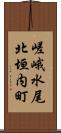 嵯峨水尾
北垣内町